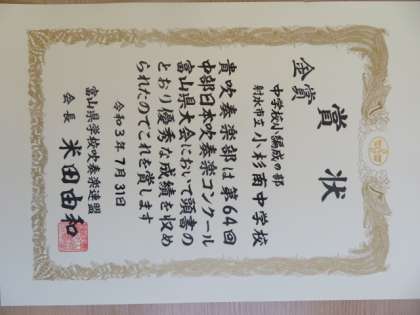 賞状
金賞
中学校小編成の部
射水市立 小杉南中学校
貴吹奏楽部は第64回
中部日本吹奏楽コンクール
富山県大会において頭書の
とおり優秀な成績を収め
られたのでこれを賞します
令和3年7月31日
富山県学校吹奏楽連盟
会長 米田由和